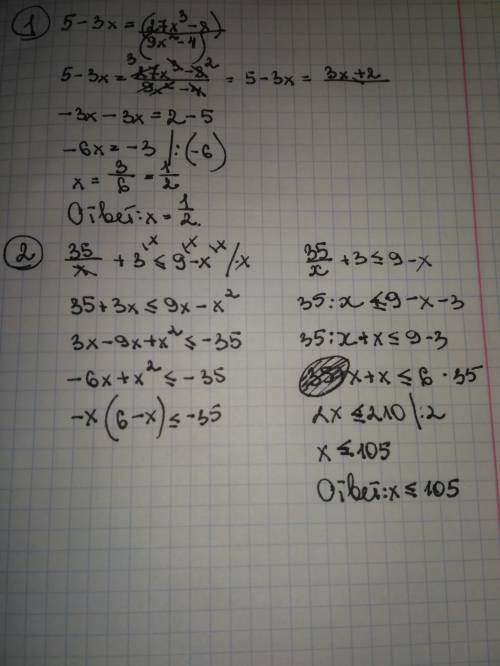 1 5 - 3x = (27x³ - 8) / (9x² - 4)
5 - 3x = 27x³ - 8 / 9x² - 4 = 5 - 3x = 3x + 2
3 2
-3x - 3x = 2 - 5
-6x = -3 | : (-6)
x = 3/6 = 1/2
Ответ: x = 1/2.
2 35/x + 3 ≤ 9 - x / · x
\x \x \x
35 + 3x ≤ 9x - x²
3x - 9x + x² ≤ -35
-6x + x² ≤ -35
-x (6 - x) ≤ -35
35/x + 3 ≤ 9 - x
35 : x ≤ 9 - x - 3
35 : x + x ≤ 9 - 3
x + x ≤ 6 · 35
2x ≤ 210 | : 2
x ≤ 105
Ответ: x ≤ 105